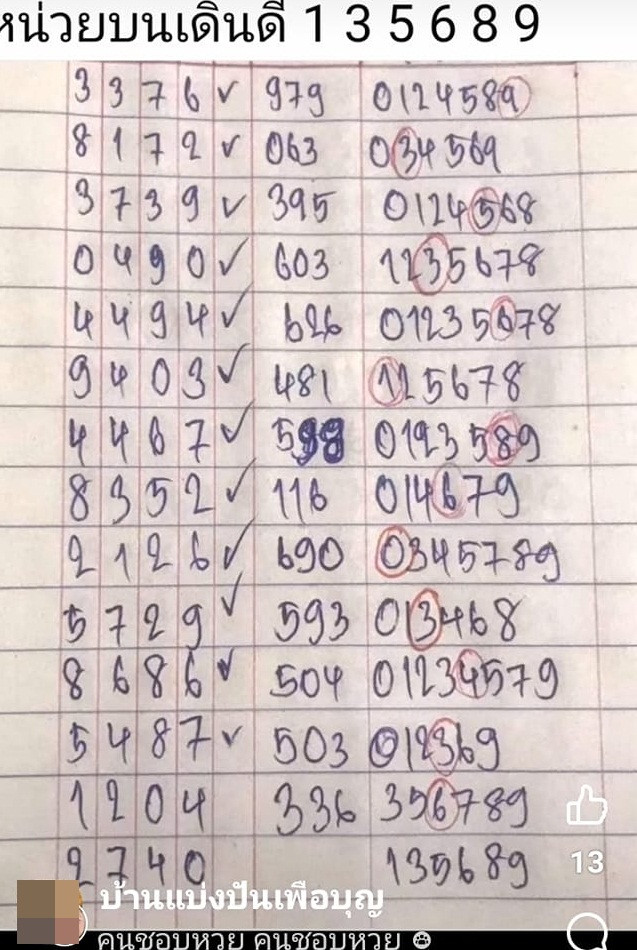 หน่วยบนเดินดี 1 3 5 6 8 9
3 3 7 6 ✓ 979 0124589
8 1 7 2 ✓ 063 034569
3 7 3 9 ✓ 395 0124568
0 4 9 0 ✓ 603 1235678
4 4 9 4 ✓ 626 01235678
9 4 0 3 ✓ 481 125678
4 4 6 7 ✓ 598 0123589
8 3 5 2 ✓ 116 014679
2 1 2 6 ✓ 690 0345789
5 7 2 9 ✓ 593 013468
8 6 8 6 ✓ 504 01234579
5 4 8 7 ✓ 503 012369
1 2 0 4 336 356789
2 7 4 0 135689
13
บ้านแบ่งปันเพือบุญ
คนชอบหวย คนชอบหวย